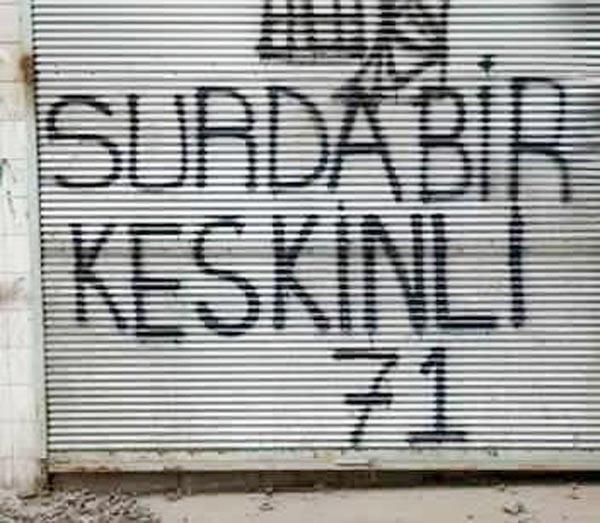 SURDABİR
KESKİNLİ
71